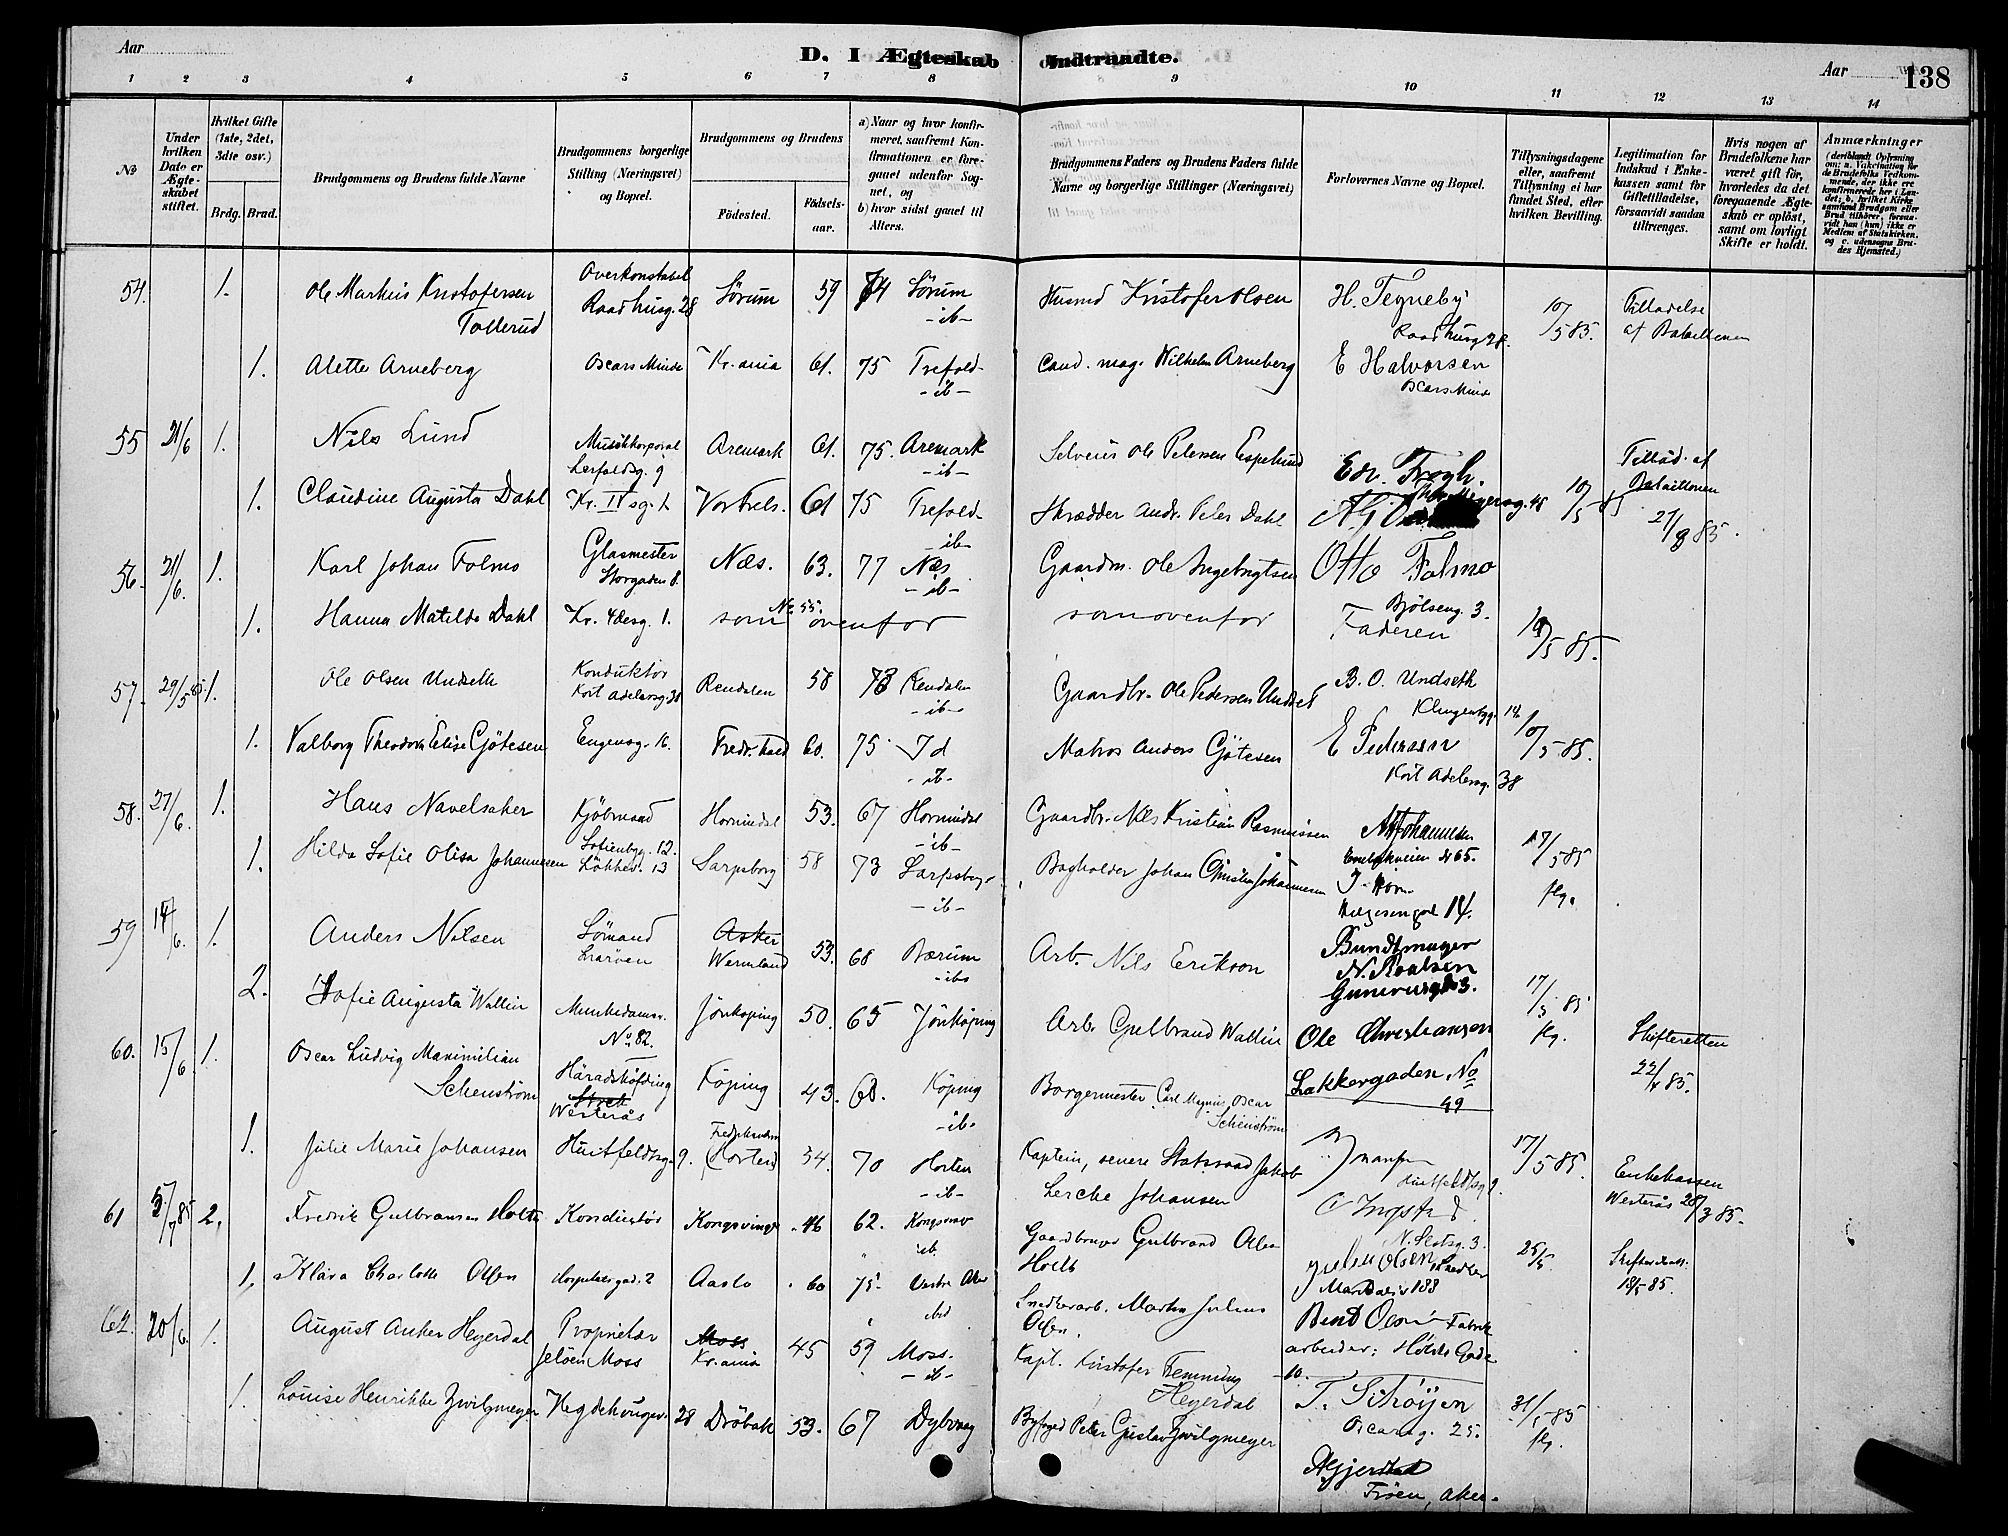 Aar
D. I Ægteskab Indtraadte.
Aar
138
1 2 3 4 5 6 7 8 9 10 11 12 13 14
No
Under hvilken Dato er Ægteskabet stiftet.
Hvilket Gifte (1ste, 2det, 3die osv.)
Brdg. Brud.
Brudgommens og Brudens fulde Navne
Brudgommens borgerlige Stilling (Næringsvei) og Bopæl.
Brudgommens og Brudens
Födested.
Födselsaar.
a) Naar og hvor konfirmeret, saafremt Konfirmationen er foregaaet udenfor Sognet, og
b) hvor sidst gaaet til Alters.
Brudgommens Faders og Brudens Faders fulde Navne og borgerlige Stillinger (Næringsvei)
Forlovernes Navne og Bopæl.
Tillysningsdagene eller, saafremt Tillysning ei har fundet Sted, efter hvilken Bevilling.
Legitimation for Indskud i Enkekassen samt for Giftetilladelse, forsaavidt saadan tiltrænges.
Hvis nogen af Brudefolkene har været gift för, hvorledes da det foregaaende Ægteskab er oplöst, samt om lovligt Skifte er holdt.
Anmærkninger
54. 1. Ole Martius Kristofersen Tollerud Overkonstabel Raadhusg. 28 Sörum 59 74 Sörum -ib- Husmd Kristofer Olsen H. Tegneby Raadhusg 28. 10/5 85. Tilladelse af Bataillonen
1. Alette Arneberg Oscars Minde Kr.ania 61. 75 Trefold- -ib- Cand. mag. Wilhelm Arneberg E Halvorsen Oscars Minde
55 21/6 1. Nils Lund Musikkorporal 9 Aremark 61. 75. Aremark -ib- Selveier Ole Petersen Espelund Edv. Trogh. Tillad. af Bataillonen
1. Claudine Augusta Dahl Kr. IV sg. 1. Vor Frels. 61 75 Trefold- -ib- Skrædder Andr. Peter Dahl 48 10/5 85 27/3 85.
56. 21/6. 1. Karl Johan Folmo Glasmester Storgaden 8. Næs. 63. 77 Næs -ib- Gaardm. Ole Ingebrigtsen Otto Folmo
1. Hanna Matilde Dahl Kr. 4desg. 1. som No 55. ovenfor som ovenfor Bjölseng. 3. Faderen 10/5 85.
57. 29/5 85. 1. Ole Olsen Undseth Konduktör Kort Adelersg. 38 Rendalen 58 73 Rendalen -ib- Gaardbr. Ole Pedersen Undset B. O. Undseth Klingenbgg. 14
1. Valborg Theodora Elise Gjötesen Engensg. 16. Fredr.hald 60. 75. Id -ib- Matros Anders Gjötesen E Pedersen Kort Adelersg. 38 10/5 85.
58. 27/6. 1. Hans Navelsaker Kjöbmand Sofienbgg. 12. Hornindal 53. 67 Hornindal -ib- Gaardbr. Nils Kristian Rasmussen Johannesen 65. 17/5 85
1. Hilda Sofie Olisa Johannesen Lökkeb. 13 Sarpsborg 58 73 Sarpsborg -ib- Bogholder Johan Christen Johannesen Helgesensgd 14. flg.
59 14/6. 1. Anders Nilsen Sömand Asker Wermland 53. 68 Bærum -ib- Arb. Nils Erikson Bundtmager N. Roalsen
2. Sofie Augusta Wallin Munkedamsv. No 82. Jönköping 50. 65 Jönköping Arb. Gulbrand Wallin Ole Christiansen 17/5 85 flg. Skifteretten 22/ 85.
60. 15/6 1. Oscar Ludvig Maximilian Schenström Häradshöfding Westerås Köping 43. 60. Köping -ib- Borgermester Carl Magnus Oscar Schenström Lakkergaden No 49
1. Julie Marie Johansen Huitfeldtsg. 9. Fredrikshavn (Horten) 54. 70 Horten -ib- Kaptein, senere Statsraad Jakob Lerche Johansen Huitfeldtsg 9. 17/5 85. Enkekassen Westerås 28/3 85.
61 5/7 85 2. Fredrik Gulbransen Holt Konduktör Kongsvinger 46 62. Kongsvin ib. Gaardbruger Gulbrand Olsen Holt O Ingstad N. Slotsg. 3.
1. Klara Charlotte Olsen Hospitalsgad. 2 Aaslo 60 75 Vestre Aker ibid Snedkerarb. Martin Julius Olsen. Julius Olsen Snedker Maridalsv 188 25/5. 18/5 85.
62. 20/6. 1. August Anker Heyerdal Proprietær Jelöen Moss Moss Kr.ania 45 59 Moss. -ib- Kapt. Kristofer Flemming Heyerdal Bent Olsen Fabrik arbeider: Holsts Gade 10.
1. Louise Henrikke Zwilgmeyer Hegdehaugsv. 28 Dröbak 53. 67 Dybvaag Byfoged Peter Gustav Zwilgmeyer T. Schöyen Oscarsg. 25. 31/5 85 flg.
Fröen, Aker.